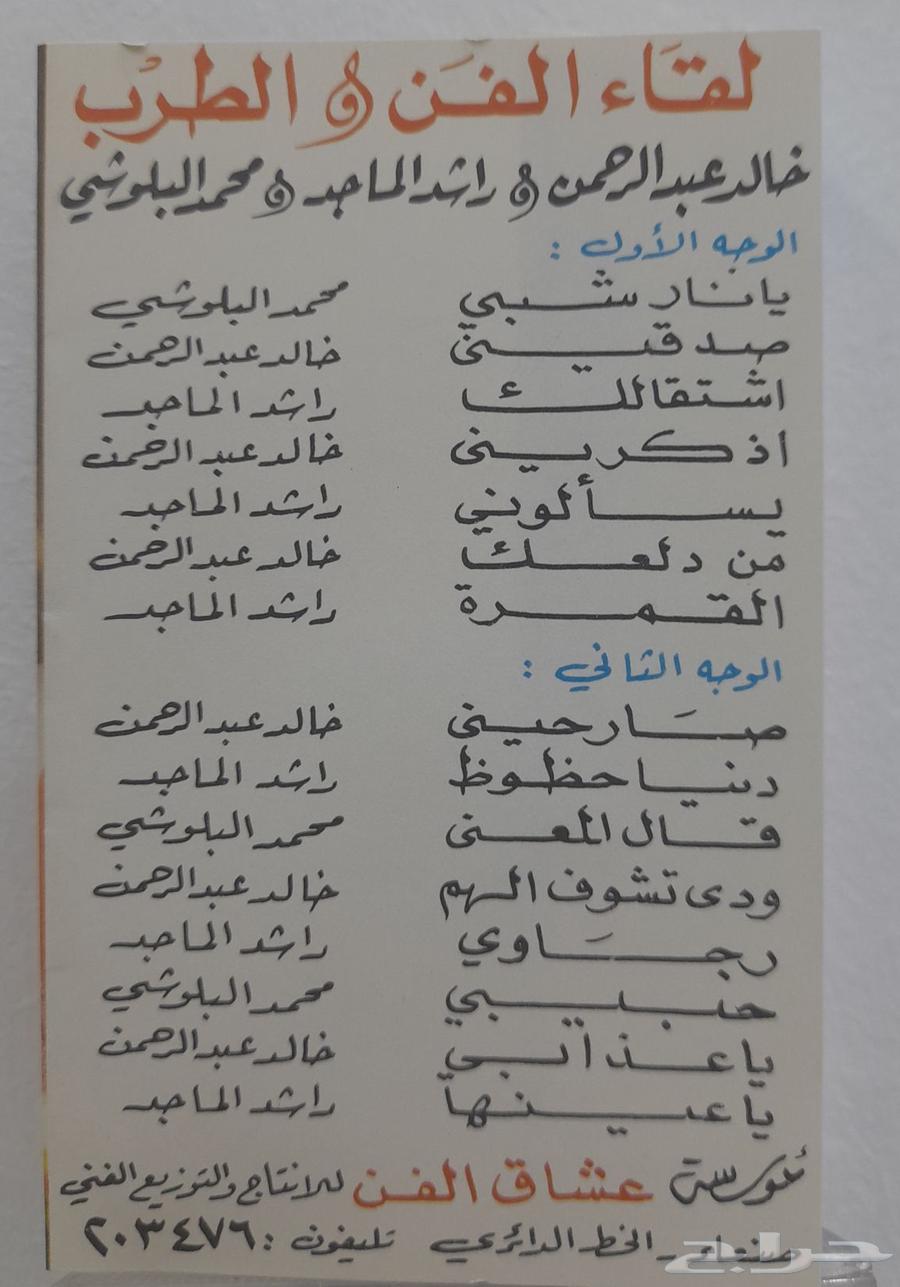 لقاء الفن و الطرب
خالد عبدالرحمن و راشد الماجد و محمد البلوشي
الوجه الأول :
يا نار شبي محمد البلوشي
صدقيني خالد عبدالرحمن
اشتقالك راشد الماجد
اذكريني خالد عبدالرحمن
يسألوني راشد الماجد
من دلعك خالد عبدالرحمن
القمرة راشد الماجد
الوجه الثاني :
صارحيني خالد عبدالرحمن
دنيا حظوظ راشد الماجد
قال المعنى محمد البلوشي
ودى تشوف الهم خالد عبدالرحمن
رجاوي راشد الماجد
حبيبي محمد البلوشي
يا عذابي خالد عبدالرحمن
يا عينها راشد الماجد
مؤسسة عشاق الفن للانتاج والتوزيع الفني
صنعاء - الخط الدائري تليفون : ٢٠٣٤٧٦
حراج